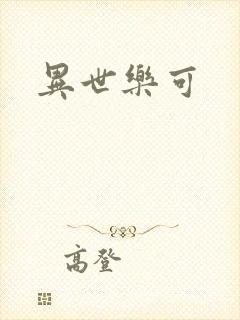 異世樂可
高登